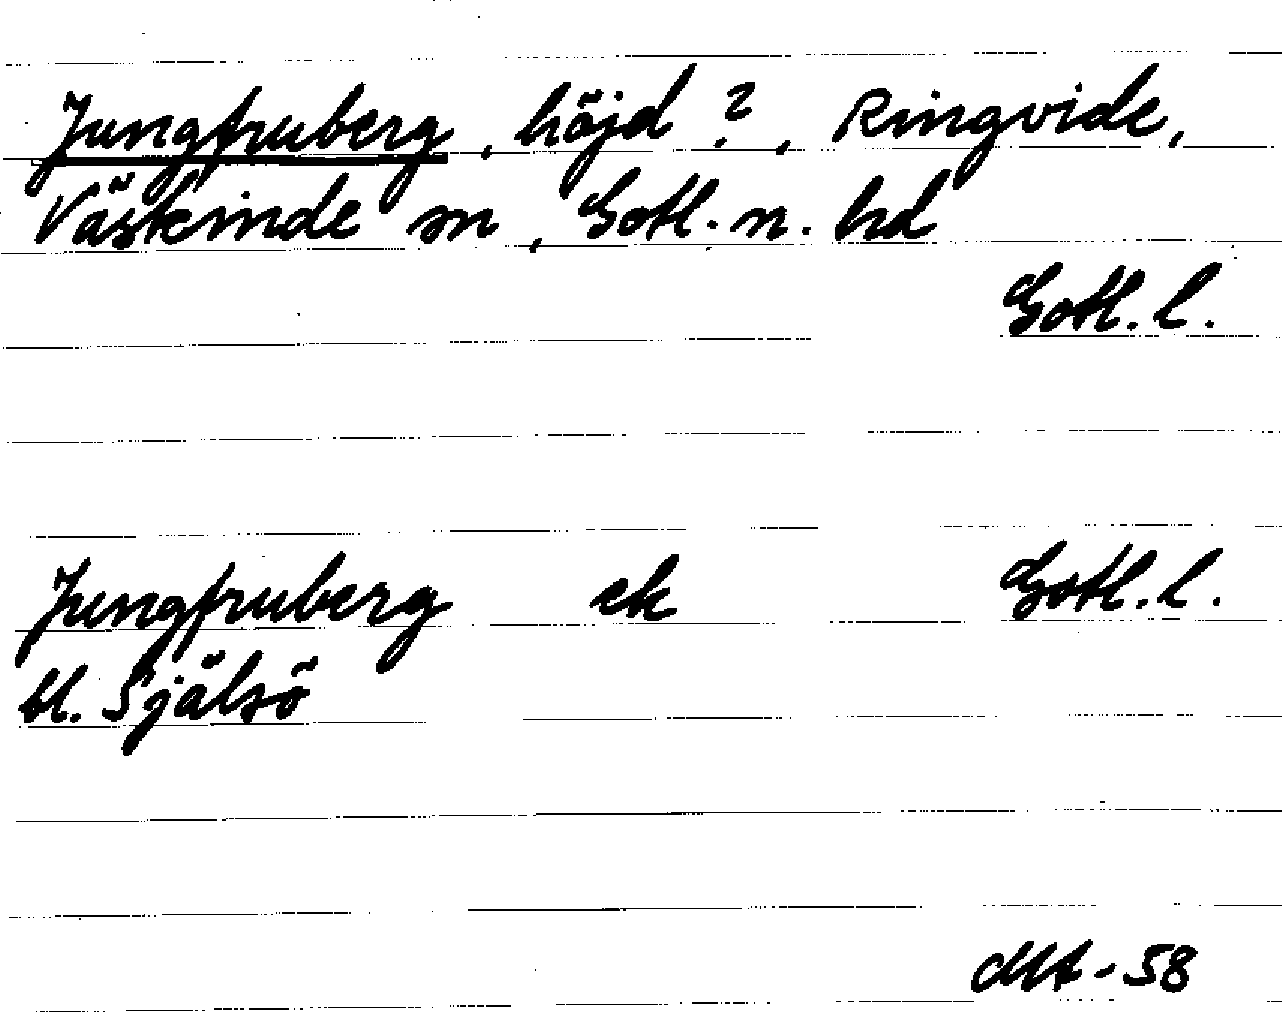 Jungfruberg, höjd?, Ringvide,
Väskinde sn, Gotl. n. hd
Gotl. l.
Jungfruberg ek Gotl. l.
bl. Själsö
-58